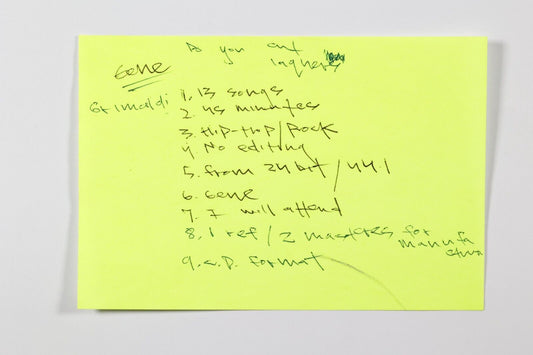 Do you cut
laquers
Gene
Grimaldi
1. 13 songs
2. 45 minutes
3. Hip-Hop/Rock
4. No editing
5. from 24 bit / 44.1
6. Gene
7. 7 will attend
8. 1 ref / 2 masters for
manufa
cture
9. format